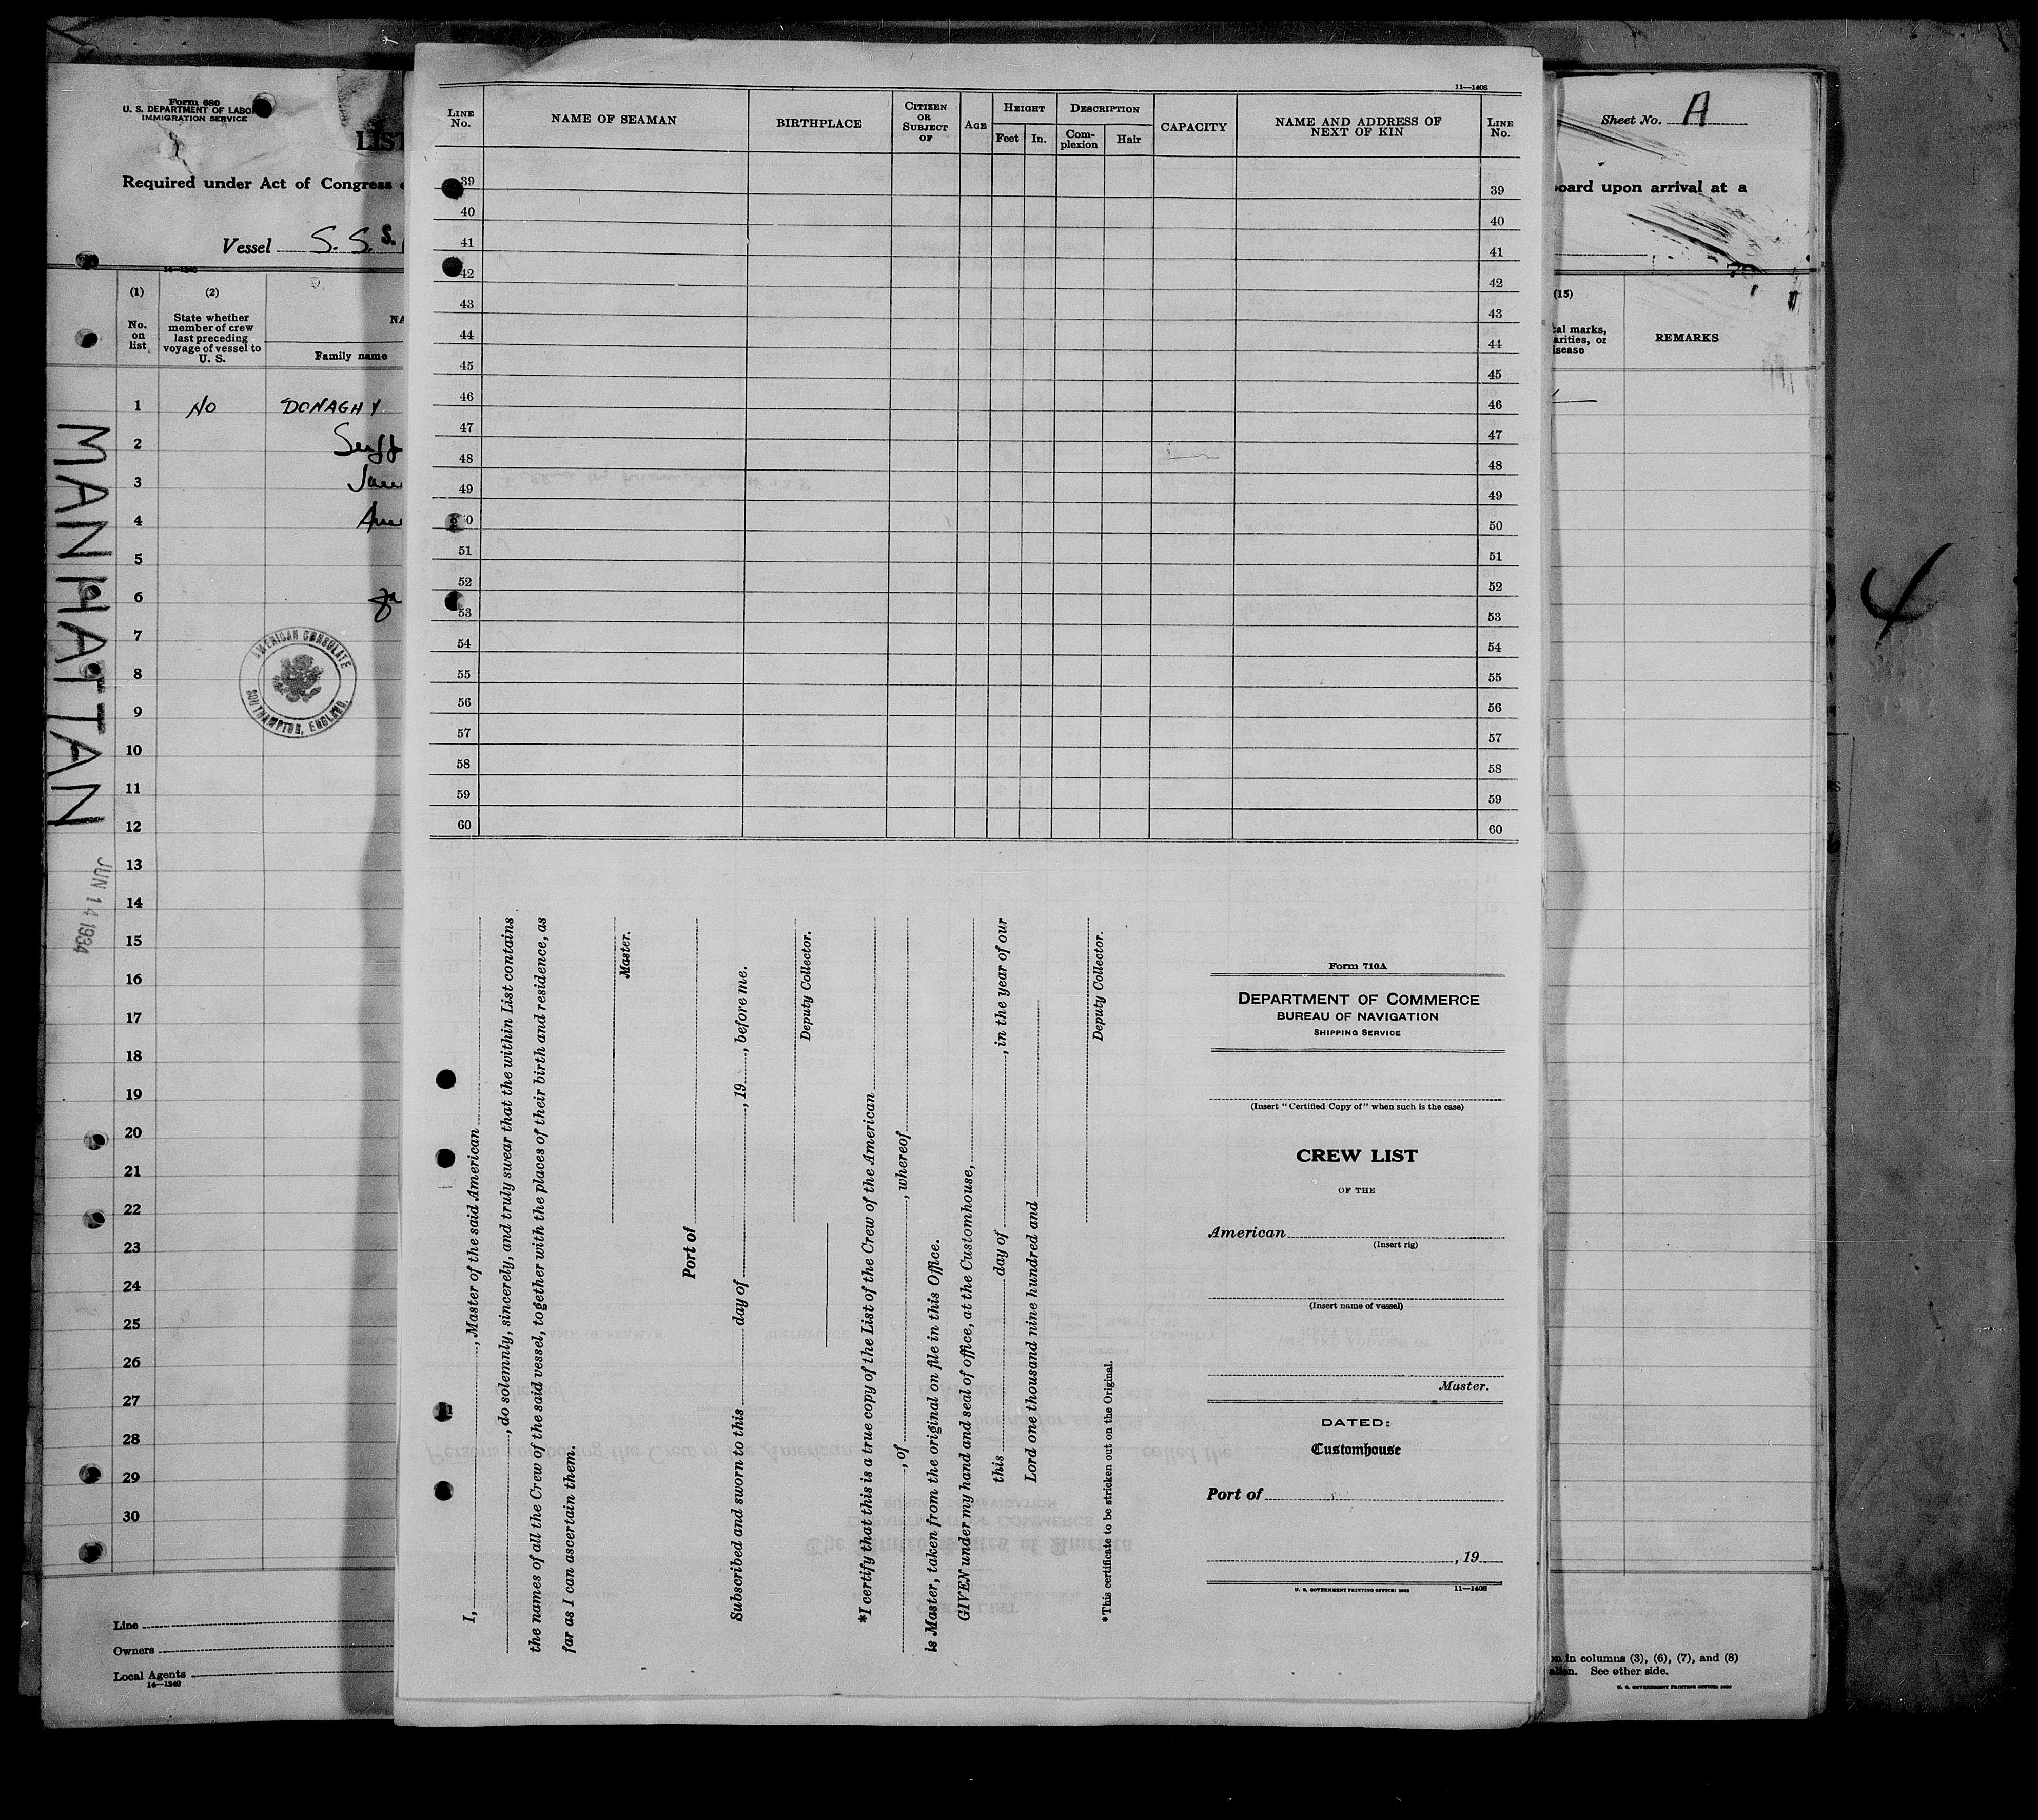 Form 680
U. S. DEPARTMENT OF LABO
IMMIGRATION SERVICE
LIST
Required under Act of Congress
Vessel S. S. S.
14—1240
(1)
No. on list
(2)
State whether member of crew last preceding voyage of vessel to U. S.
NA
Family name
1 NO DONAGHY
2
3
4
5
6
7
8
9
10
11
12
13
14
15
16
17
18
19
20
21
22
23
24
25
26
27
28
29
30
MANHATTAN
JUN 14 1934
AMERICAN CONSULATE
SOUTHAMPTON, ENGLAND.
Line
Owners
Local Agents
14—1240
11—1408
LINE No.
NAME OF SEAMAN
BIRTHPLACE
CITIZEN OR SUBJECT OF
AGE
HEIGHT
Feet
In.
DESCRIPTION
Com-
plexion
Hair
CAPACITY
NAME AND ADDRESS OF
NEXT OF KIN
LINE No.
39 39
40 40
41 41
42 42
43 43
44 44
45 45
46 46
47 47
48 48
49 49
50 50
51 51
52 52
53 53
54 54
55 55
56 56
57 57
58 58
59 59
60 60
I, , Master of the said American
, do solemnly, sincerely, and truly swear that the within List contains
the names of all the Crew of the said vessel, together with the places of their birth and residence, as
far as I can ascertain them.
Master.
Port of
Subscribed and sworn to this day of , 19 , before me.
Deputy Collector.
*I certify that this is a true copy of the List of the Crew of the American
, of , whereof
is Master, taken from the original on file in this Office.
GIVEN under my hand and seal of office, at the Customhouse,
this day of , in the year of our
Lord one thousand nine hundred and
Deputy Collector.
*This certificate to be stricken out on the Original.
Form 710A
DEPARTMENT OF COMMERCE
BUREAU OF NAVIGATION
SHIPPING SERVICE
(Insert "Certified Copy of" when such is the case)
CREW LIST
OF THE
American
(Insert rig)
(Insert name of vessel)
Master.
DATED:
Customhouse
Port of
, 19
U. S. GOVERNMENT PRINTING OFFICE: 11—1408
Sheet No. A
oard upon arrival at a
(15)
cal marks,
arities, or
isease
REMARKS
4
on in columns (3), (6), (7), and (8)
alien. See other side.
U. S. GOVERNMENT PRINTING OFFICE: